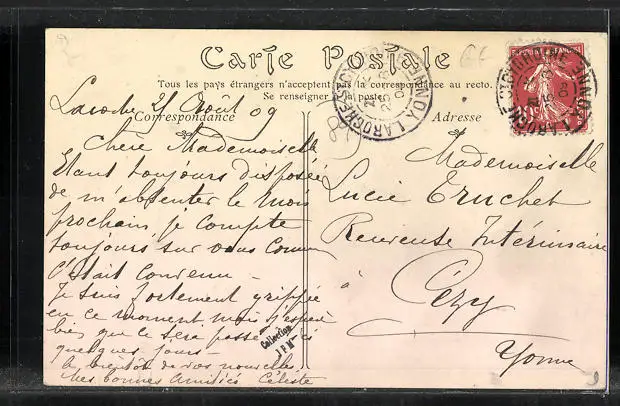 Carte Postale
Tous les pays étrangers n'acceptent pas la correspondance au recto.
Se renseigner à la poste.
Correspondance
Adresse
Laroche 25 Aout 09
Chère Mademoiselle
Etant toujours disposée
de m'absenter le mois
prochain, je compte
toujours sur vous comme
c'était convenu -
Je suis fortement grippée
en ce moment mais j'espère
bien que ce sera passé d'ici
quelques jours -
à bientôt de vos nouvelles.
Mes bonnes amitiés Céleste
Mademoiselle
Lucie Truchet
Receveuse Intérimaire
à
Cézy
Yonne
Collection
J F M
LAROCHE ST CYDROINE YONNE
LAROCHE ST CYDROINE YONNE